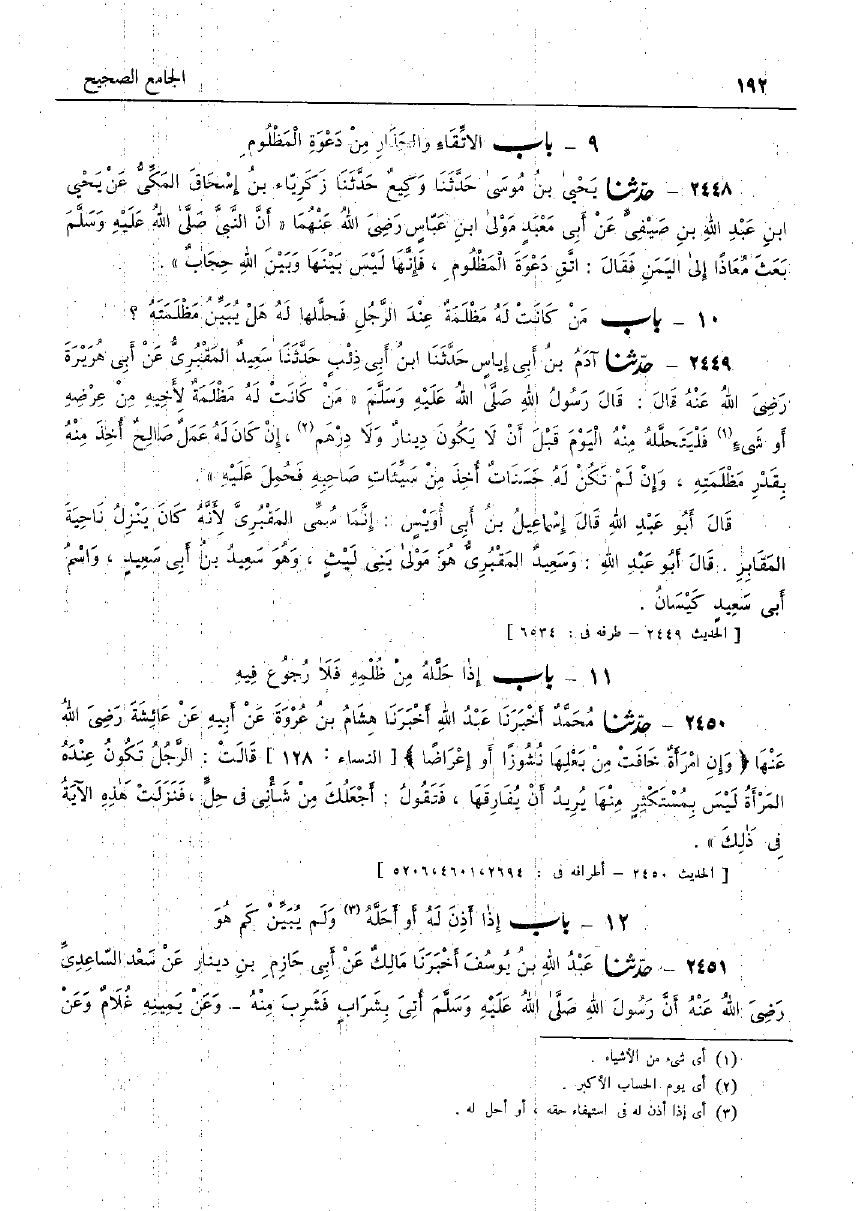 ١٩٢ الجامع الصحيح
٩ – باب الاتِّقَاءِ والحَذَارِ مِنْ دَعْوَةِ الْمَظْلُومِ
٢٤٤٨ – حدّثنا يَحْيىٰ بنُ مُوسَىٰ حَدَّثَنَا وَكِيعٌ حَدَّثَنَا زَكَرِيَّاء بنُ إِسْحَاقَ المَكِّىُّ عَنْ يَحْيٰي
ابنِ عَبْدِ اللهِ بنِ صَيْفِىٍّ عَنْ أَبِى مَعْبَدٍ مَوْلىٰ ابنِ عَبَّاسٍ رَضِىَ اللهُ عَنْهُمَا « أَنَّ النَّبِىَّ صَلَّىٰ اللهُ عَلَيْهِ وَسَلَّمَ
بَعَثَ مُعَاذًا إِلىٰ اليَمَنِ فَقَالَ : اتَّقِ دَعْوَةَ الْمَظْلُومِ ، فَإِنَّهَا لَيْسَ بَيْنَهَا وَبَيْنَ اللهِ حِجَابٌ » .
١٠ – باب مَنْ كَانَتْ لَهُ مَظْلَمَةٌ عِنْدَ الرَّجُلِ فَحلَّلها لَهُ هَلْ يُبَيِّنُ مَظْلَمَتَهُ ؟
٢٤٤٩ – حدّثنا آدَمُ بنُ أَبى إِياسٍ حَدَّثَنَا ابنُ أَبى ذِئْبٍ حَدَّثَنَا سَعِيدٌ المَقْبُرِىُّ عَنْ أَبى هُرَيْرَةَ
رَضِىَ اللهُ عَنْهُ قَالَ : قَالَ رَسُولُ اللهِ صَلَّىٰ اللهُ عَلَيْهِ وَسَلَّمَ « مَنْ كَانَتْ لَهُ مَظْلَمَةٌ لِأَخِيهِ مِنْ عِرْضِهِ
أَو شَىْءٍ(١) فَلْيَتَحلَّلْهُ مِنْهُ الْيَوْمَ قَبْلَ أَنْ لَا يَكُونَ دِينَارٌ وَلَا دِرْهَم(٢) ، إِنْ كَانَ لَهُ عَمَلٌ صَالِحٌ أُخِذَ مِنْهُ
بِقَدْرِ مَظْلَمَتِهِ ، وَإِنْ لَمْ تَكُنْ لَهُ حَسَنَاتٌ أُخِذَ مِنْ سَيِّئَاتِ صَاحِبِهِ فَحُمِلَ عَلَيْهِ » .
قَالَ أَبُو عَبْدِ اللهِ قَالَ إِسْمَاعِيلُ بنُ أَبى أُوَيْسٍ : إِنَّمَا سُمِّىَ المَقْبُرِىَّ لِأَنَّهُ كَانَ يَنْزِلُ نَاحِيَةَ
المَقَابِرِ . قَالَ أَبُو عَبْدِ اللهِ : وَسَعِيدٌ المَقْبُرِىُّ هُوَ مَوْلىٰ بَنِى لَيْثٍ ، وَهُوَ سَعِيدُ بنُ أَبى سَعِيدٍ ، وَاسْمُ
أَبى سَعِيدٍ كَيْسَانُ .
[ الحديث ٢٤٤٩ – طرفه فى : ٦٥٣٤ ]
١١ – باب إِذَا حَلَّلهُ مِنْ ظُلْمِهِ فَلَا رُجُوعَ فِيهِ
٢٤٥٠ – حدّثنا مُحَمَّدٌ أَخْبَرَنَا عَبْدُ اللهِ أَخْبَرَنَا هِشَامُ بنُ عُرْوَةَ عَنْ أَبِيهِ عَنْ عَائِشَةَ رَضِىَ اللهُ
عَنْهَا ﴿ وَإِنِ امْرَأَةٌ خَافَتْ مِنْ بَعْلِهَا نُشُوزًا أَو إِعْرَاضًا ﴾ [ النساء : ١٢٨ ] قَالَتْ : الرَّجُلُ تَكُونُ عِنْدَهُ
المَرْأَةُ لَيْسَ بِمُسْتَكْثِرٍ مِنْهَا يُرِيدُ أَنْ يُفَارِقَهَا ، فَتَقُولُ : أَجْعَلُكَ مِنْ شَأْنِى فى حِلٍّ ، فَنَزَلَتْ هَٰذِهِ الآيَةُ
فِى ذَٰلِكَ » .
[ الحديث ٢٤٥٠ – أطرافه فى : ٢٦٩٤، ٤٦٠١، ٥٢٠٦ ]
١٢ – باب إِذَا أَذِنَ لَهُ أَو أَحَلَّهُ(٣) وَلَم يُبَيِّنْ كَم هُوَ
٢٤٥١ – حدّثنا عَبْدُ اللهِ بنُ يُوسُفَ أَخْبَرَنَا مَالِكٌ عَنْ أَبى حَازِمِ بنِ دينارٍ عَنْ سَعْد السَّاعِدِىِّ
رَضِىَ اللهُ عَنْهُ أَنَّ رَسُولَ اللهِ صَلَّىٰ اللهُ عَلَيْهِ وَسَلَّمَ أُتِىَ بِشَرَابٍ فَشَرِبَ مِنْهُ – وَعَنْ يَمِينِهِ غُلَامٌ وَعَنْ
(١) أى شىء من الأشياء .
(٢) أى يوم الحساب الأكبر .
(٣) أى إذا أذن له فى استيفاء حقه ، أو أحل له .